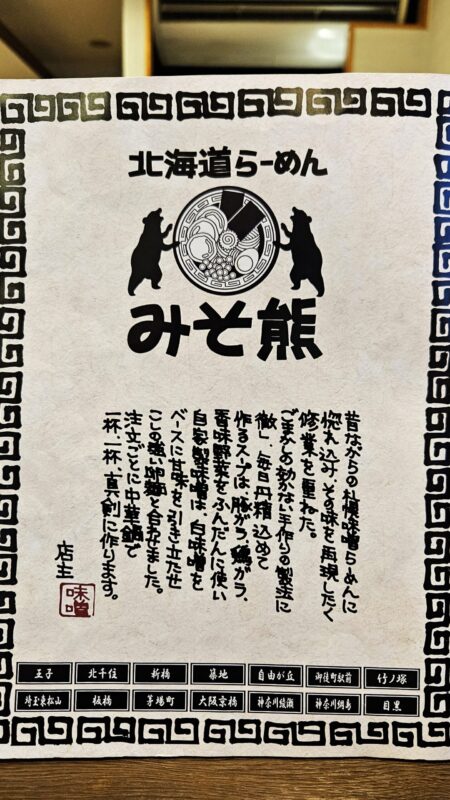 北海道らーめん
みそ熊
昔ながらの札幌味噌らーめんに
惚れ込み、その味を再現したく
修業を重ねた。
ごまかの効かない手作りの製法に
徹し、毎日丹精込めて
作るスープは豚がら、鶏がら、
香味野菜をふんだんに使い
自家製味噌は、白味噌を
ベースに甘味を引き立たせ
こしの強い卵麺と合わせました。
注文ごとに中華鍋で
一杯、一杯、真剣に作ります。
店主
味噌
王子 北千住 新橋 築地 自由が丘 御徒町駅前 竹ノ塚
埼玉東松山 板橋 茅場町 大阪京橋 神奈川綾瀬 神奈川綱島 目黒